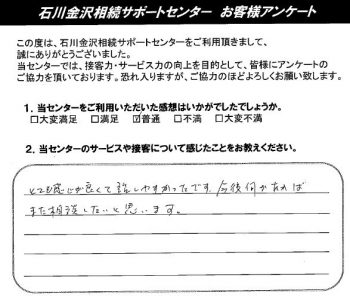 石川金沢相続サポートセンター お客様アンケート
この度は、石川金沢相続サポートセンターをご利用頂きまして、
誠にありがとうございました。
当センターでは、接客力・サービス力の向上を目的として、皆様にアンケートの
ご協力を頂いております。恐れ入りますが、ご協力のほどよろしくお願い致します。
1. 当センターをご利用いただいた感想はいかがでしたでしょうか。
□大変満足 □満足 ☑普通 □不満 □大変不満
2. 当センターのサービスや接客について感じたことをお教えください。
とても感じが良くて話しやすかったです。今後何かあれば
また相談したいと思います。